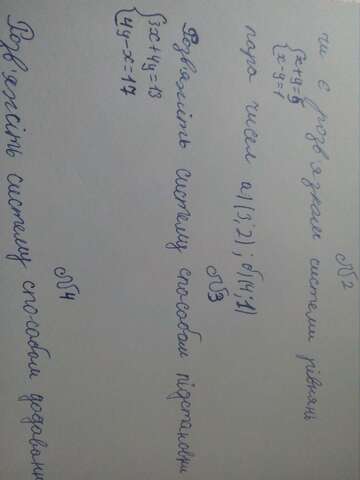 №2
Чи є розв'язком системи рівнянь
{x+y=5
x-y=1
пара чисел а)(3;2); б)(4;1)
№3
Розв'яжіть систему способом підстановки
{3x+4y=13
4y-x=17
№4
Розв'яжіть систему способом додавання